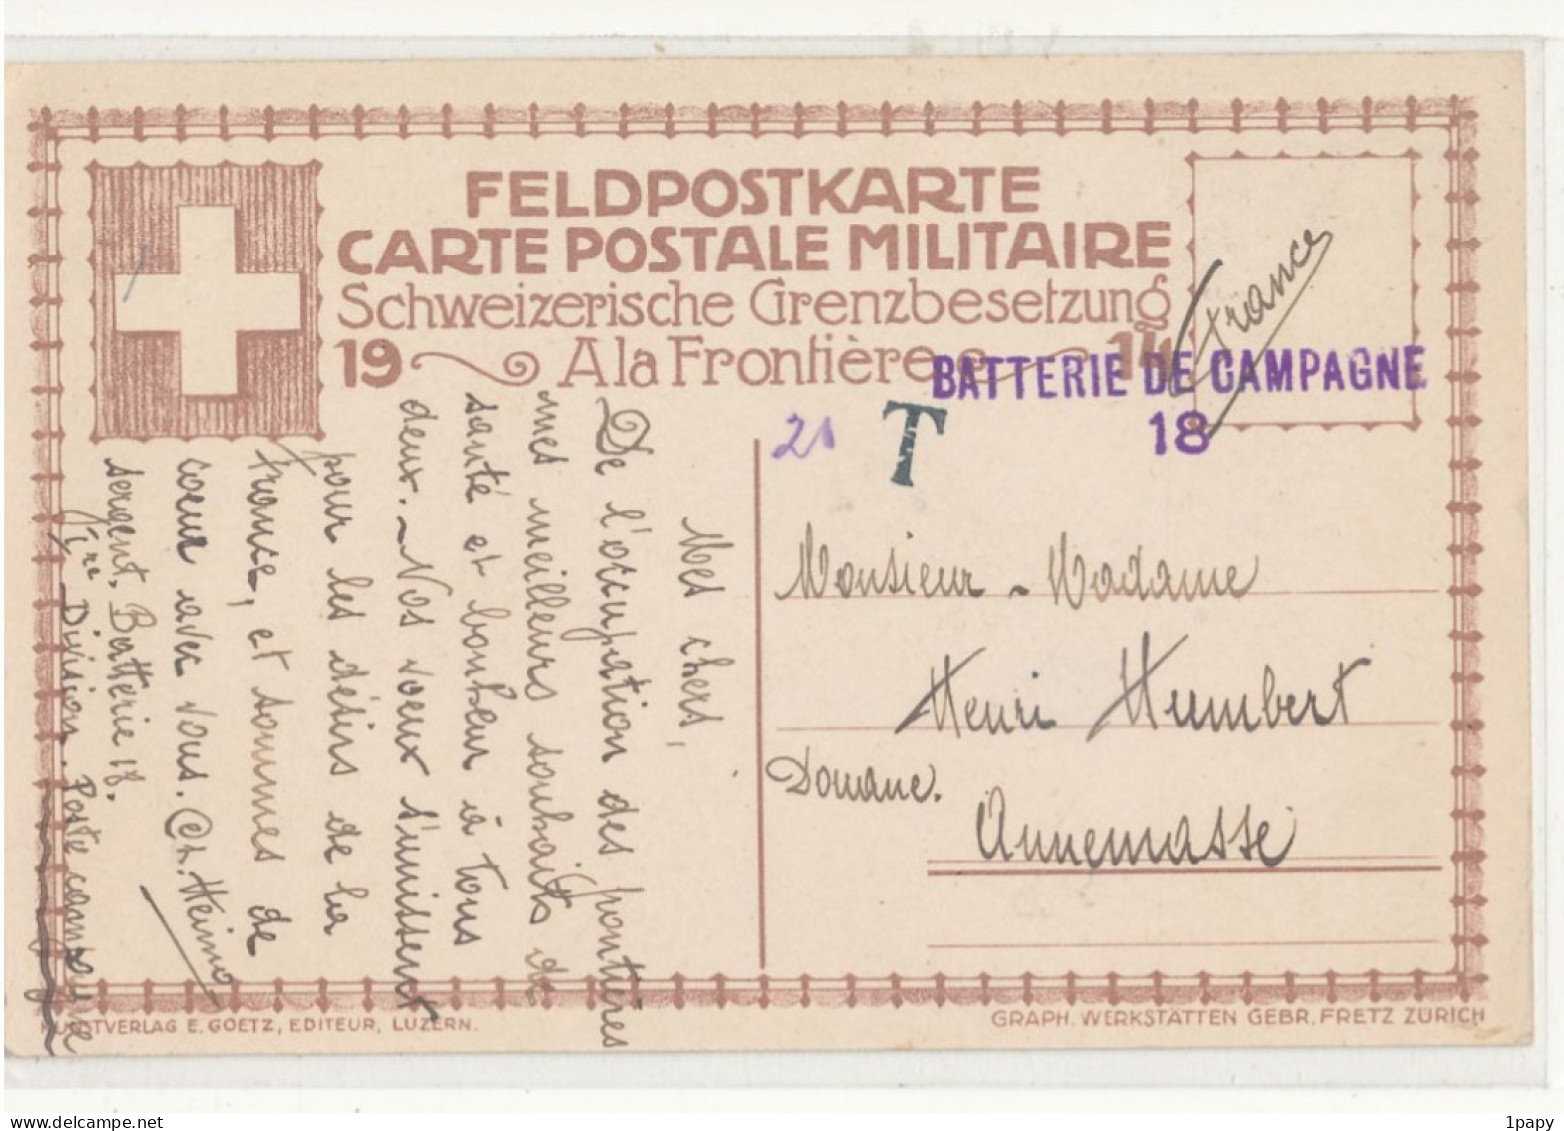 FELDPOSTKARTE
CARTE POSTALE MILITAIRE
Schweizerische Grenzbesetzung
19 A la Frontière 14
France
BATTERIE DE CAMPAGNE
18
T
Mes chers,
De l'occupation des frontières
mes meilleurs souhaits de
santé et bonheur à tous
deux. - Nos voeux s'unissent
pour les désirs de la
France, et sommes de
coeur avec vous. Ch. Heimo
sergent. Batterie 18.
1re Division. Poste campagne
Monsieur - Madame
Henri Humbert
Douane.
Annemasse
KUNSTVERLAG E. GOETZ, EDITEUR, LUZERN.
GRAPH. WERKSTÄTTEN GEBR. FRETZ ZÜRICH
www.delcampe.net
1papy